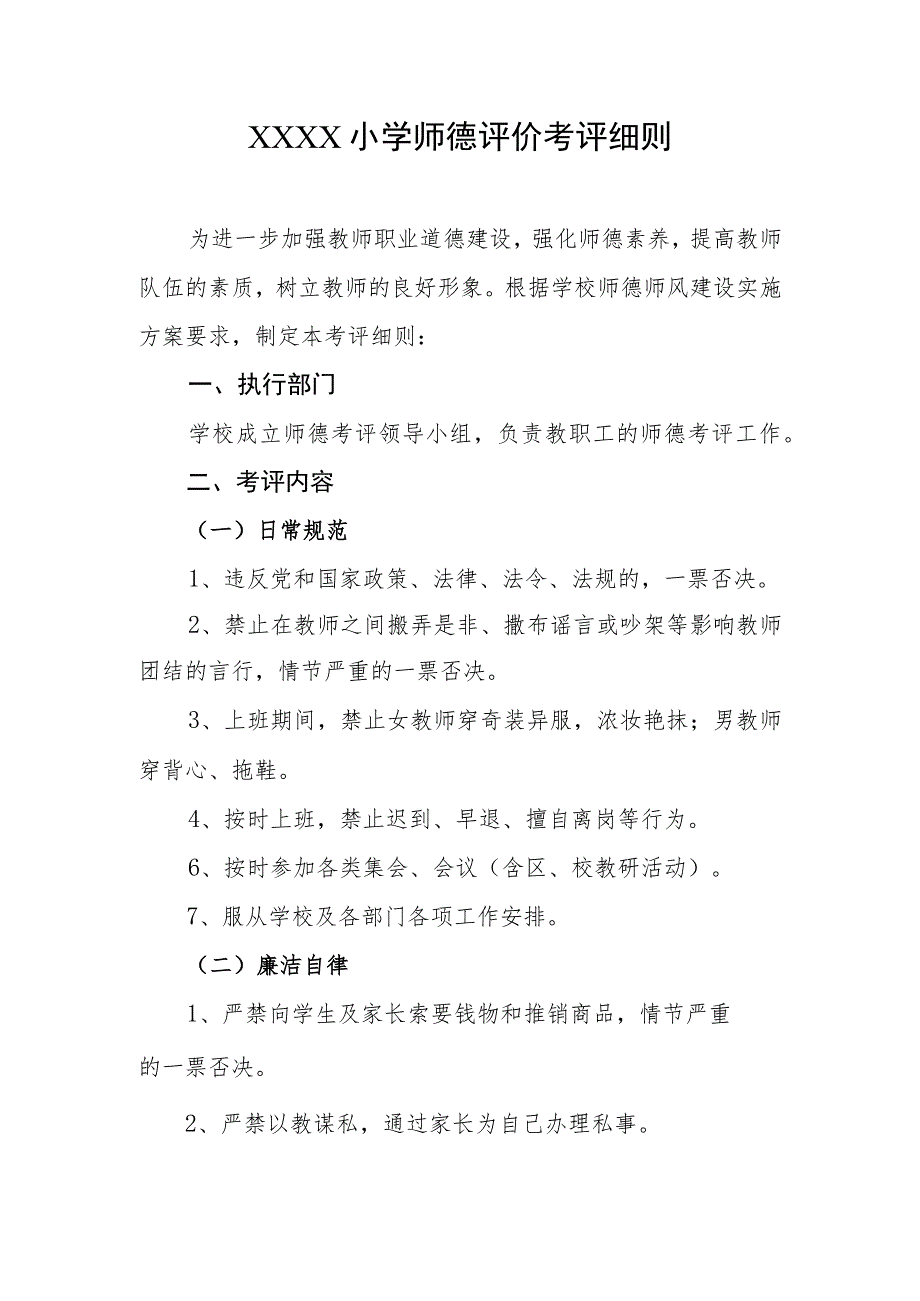 XXXX 小学师德评价考评细则
为进一步加强教师职业道德建设，强化师德素养，提高教师
队伍的素质，树立教师的良好形象。根据学校师德师风建设实施
方案要求，制定本考评细则：
一、执行部门
学校成立师德考评领导小组，负责教职工的师德考评工作。
二、考评内容
（一）日常规范
1、违反党和国家政策、法律、法令、法规的，一票否决。
2、禁止在教师之间搬弄是非、撒布谣言或吵架等影响教师
团结的言行，情节严重的一票否决。
3、上班期间，禁止女教师穿奇装异服，浓妆艳抹；男教师
穿背心、拖鞋。
4、按时上班，禁止迟到、早退、擅自离岗等行为。
6、按时参加各类集会、会议（含区、校教研活动）。
7、服从学校及各部门各项工作安排。
（二）廉洁自律
1、严禁向学生及家长索要钱物和推销商品，情节严重
的一票否决。
2、严禁以教谋私，通过家长为自己办理私事。